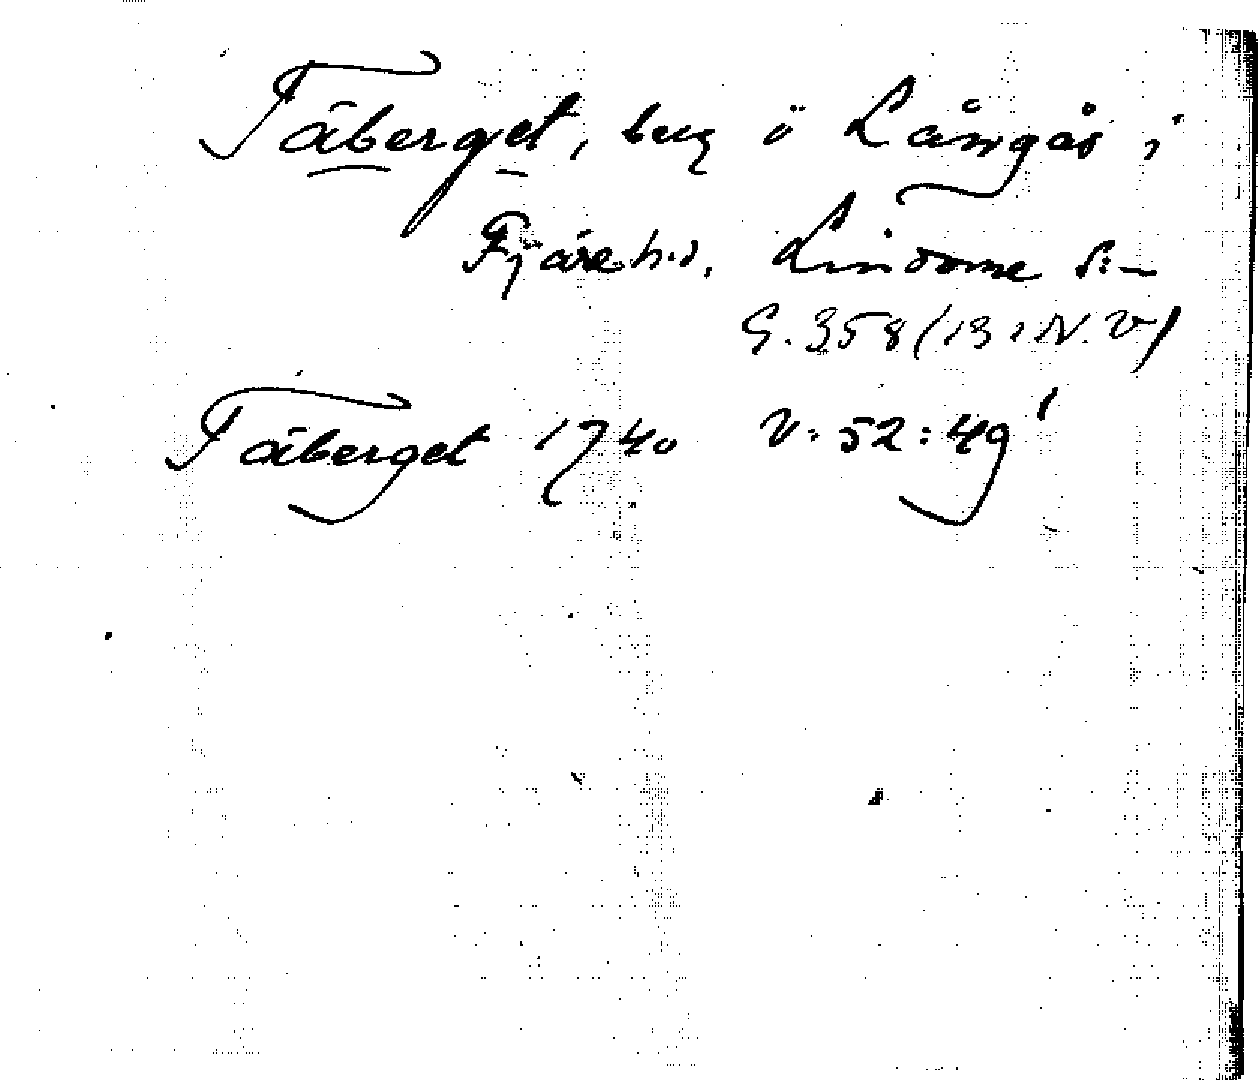 Täberget, berg ö Långås i
Fjäre h.d. Lindome s:n
G. 358 (13 i N.V)
Täberget 1740 V: 52:49'